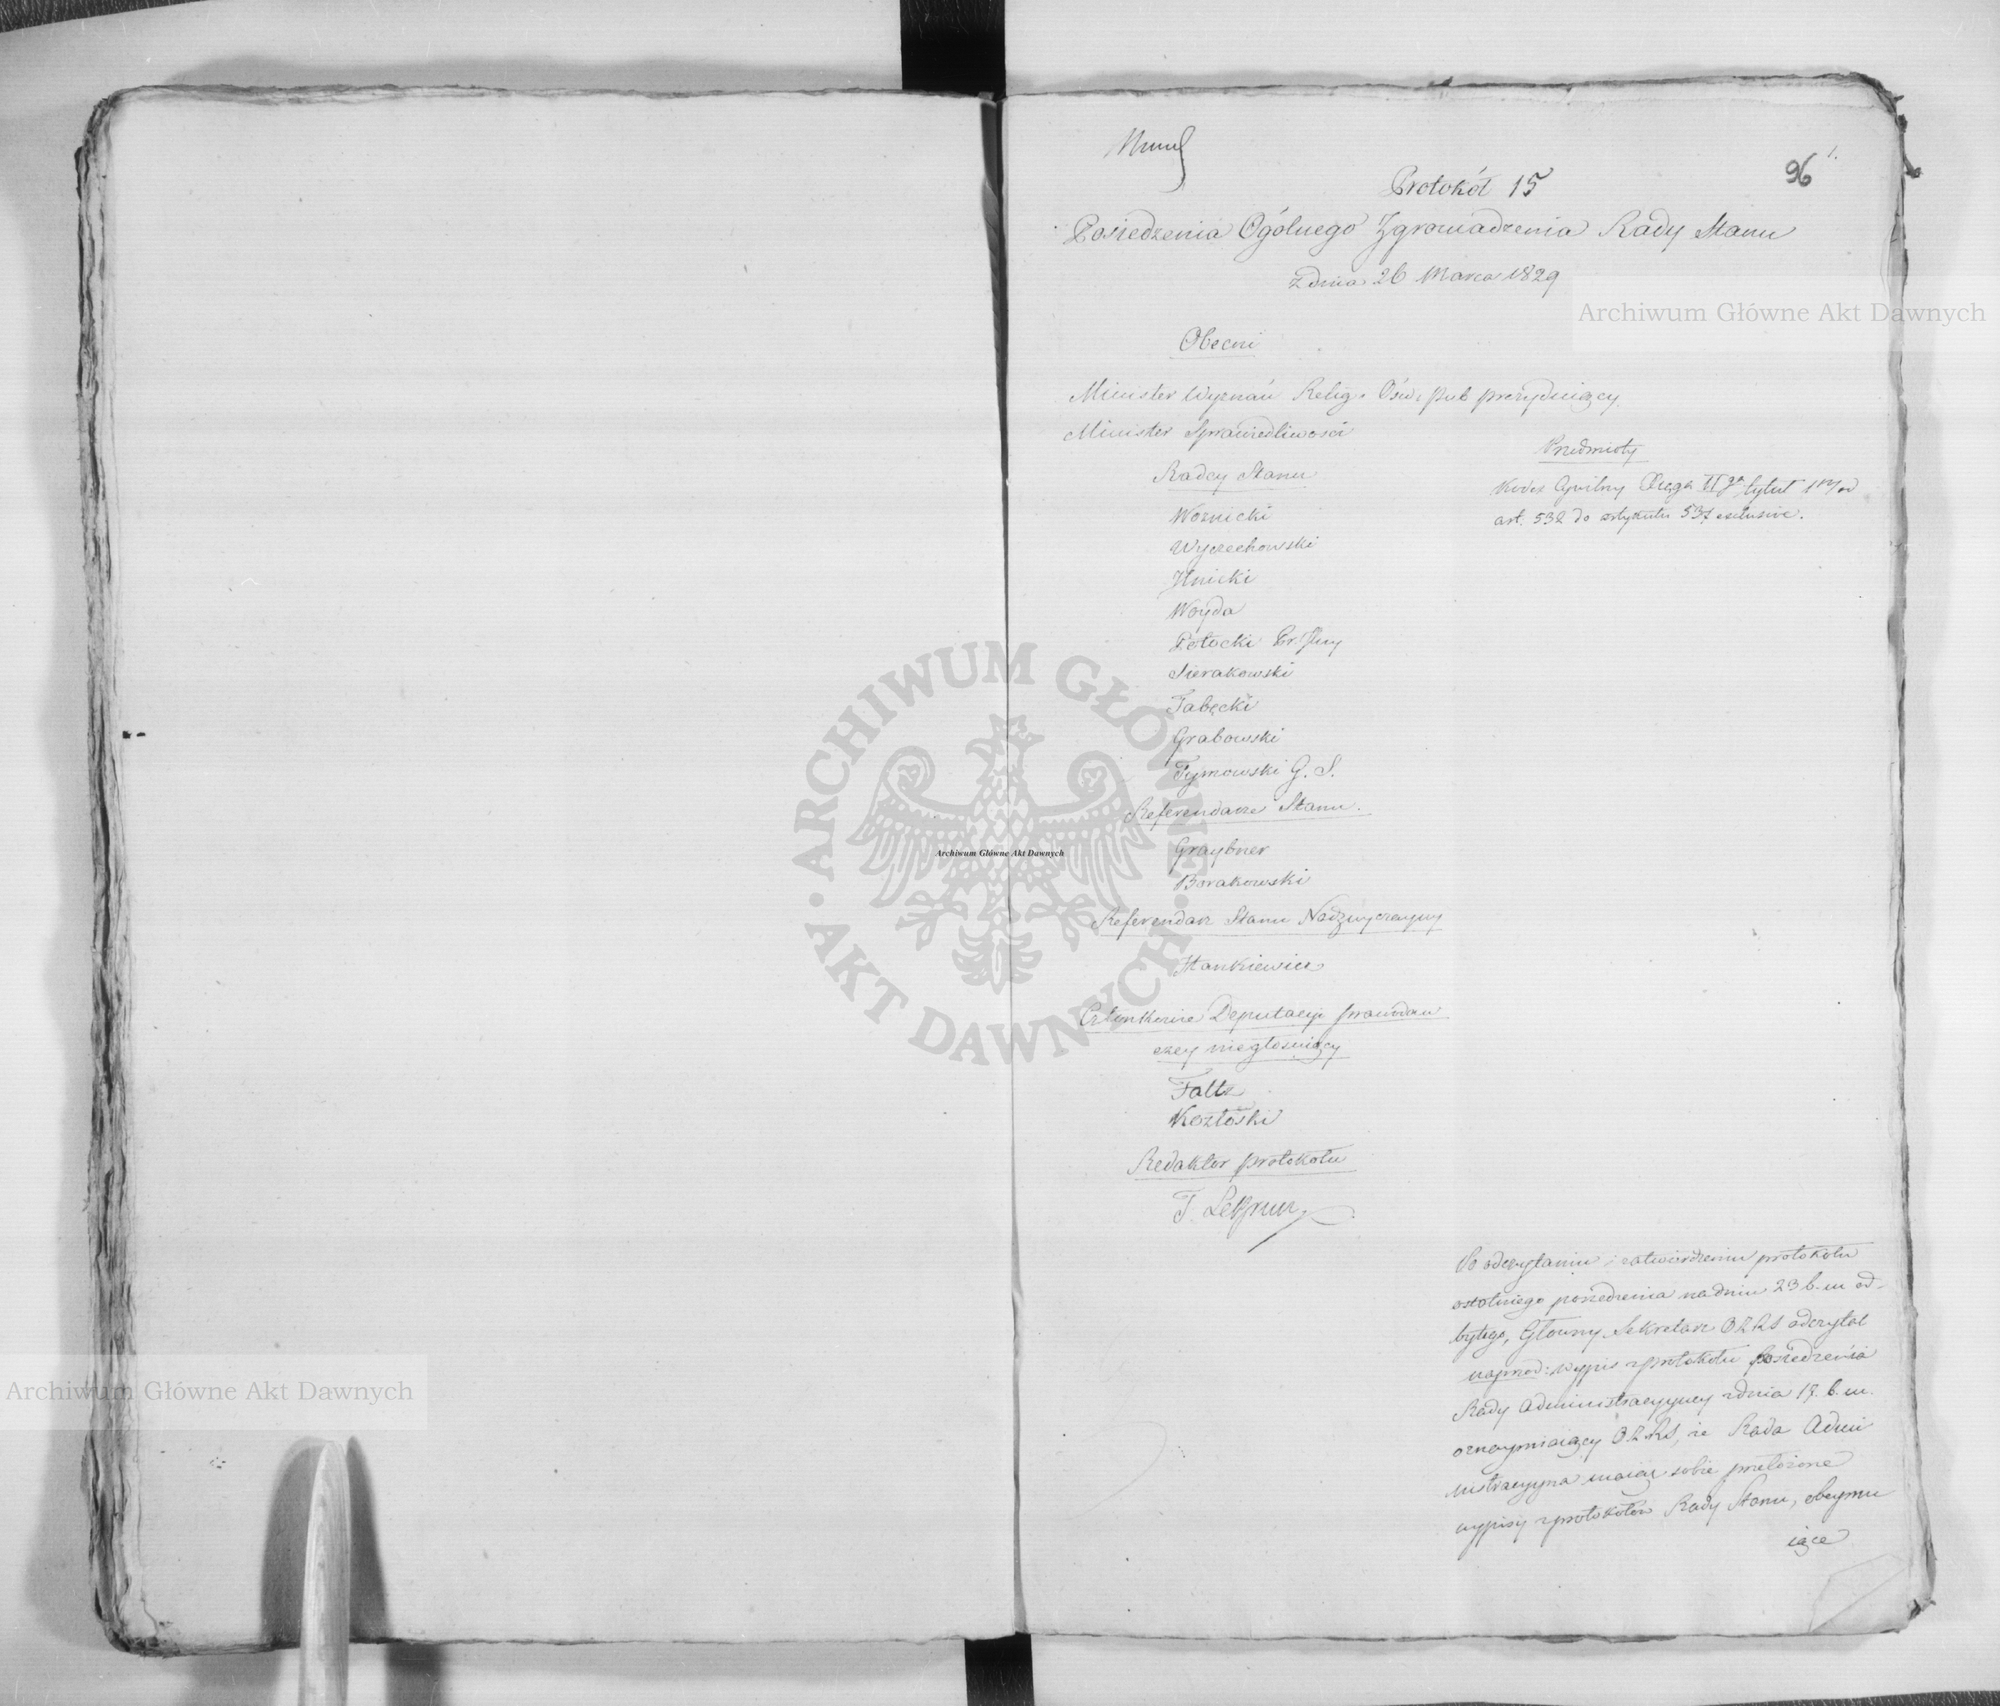 96
1.
Protokół 15
Posiedzenia Ogólnego Zgromadzenia Rady Stanu
z dnia 26 Marca 1829
Archiwum Główne Akt Dawnych
Obecni
Minister Wyznań Relig. Ośw. Pub prezyduiący
Minister Sprawiedliwości
Radcy Stanu
Woznicki
Wyczechowski
Woyda
Potocki
Sierakowski
Tabęcki
Grabowski
Tymowski G. S.
Referendarze Stanu.
Graybner
Borakowski
Referendarz Stanu Nadzwyczayny
Stankiewicz
Członkowie Deputacyi prawodaw
czey niegłosuiący
Faltz
Kozłoski
Redaktor protokołu
T. LeBrun
Przedmioty
Kodex Cywilny Xięga II ga tytuł 1 od
art. 532 do artykułu 537 exclusive.
Po odczytaniu i zatwierdzeniu protokołu
ostatniego posiedzenia na dniu 23 b. m od-
bytego, Główny Sekretarz odczytał
naprzod: wypis z protokołu posiedzenia
Rady Administracyyney z dnia 17. b. m.
oznaymiaiący, że Rada Admi
nistracyyna maiąc sobie przełożone
wypisy z protokołów Rady Stanu, obeymu
iące
ARCHIWUM GŁÓWNE · AKT DAWNYCH ·
Archiwum Główne Akt Dawnych
Archiwum Główne Akt Dawnych